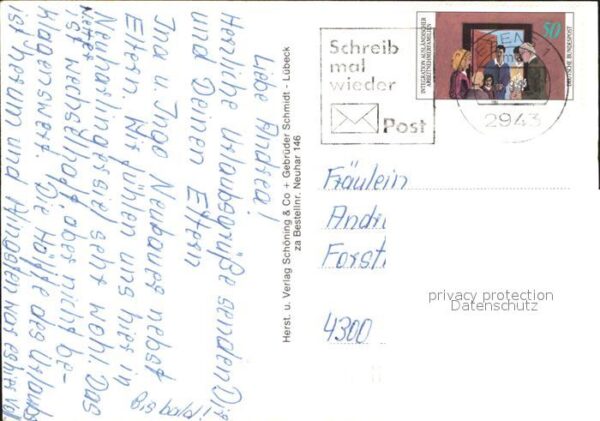 Liebe Andrea!
Herzliche Urlaubsgrüße senden Dir
und Deinen Eltern
Ina Inge Neubauer nebst
Eltern. Wir fühlen uns hier in
Neuharlingersiel sehr wohl. Das
Wetter
ist wechselhaft, aber nicht be-
klagenswert. Die Hälfte des Urlaubs
ist herum und Pfingsten war es hier
Bis bald!
Herst. u. Verlag Schöning & Co + Gebrüder Schmidt - Lübeck
za Bestellnr. Neuhar 146
Schreib
mal
wieder
Post
INTEGRATION AUSLÄNDISCHER
ARBEITNEHMERFAMILIEN
50
DEUTSCHE BUNDESPOST
2943
Fräulein
Andr
Forst.
4300
privacy protection
Datenschutz